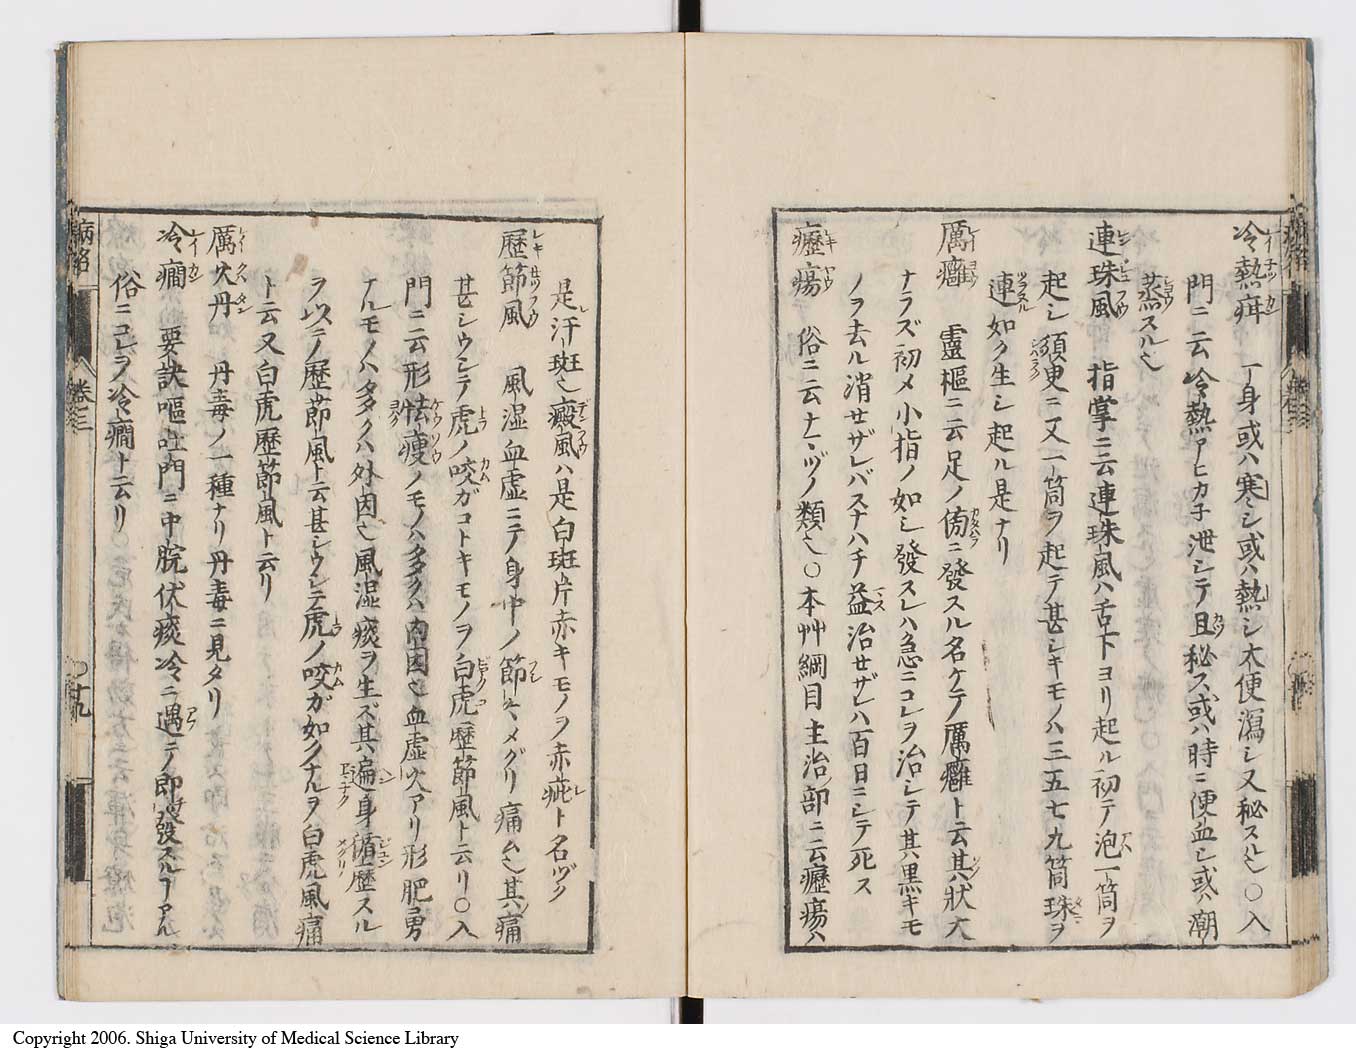 冷熱疳　一身或ハ寒シ或ハ熱シ大便瀉シ又秘スル也○入
門ニ云冷熱アヒカ子泄シテ且秘ス或ハ時ニ便血シ或ハ潮
蒸スル也
連珠風　指掌ニ云連珠風ハ舌下ヨリ起ル初テ泡一箇ヲ
起シ須臾ニ又一箇ヲ起テ甚シキモノハ三五七九箇珠ヲ
連如ク生シ起ル是ナリ
厲癰　靈樞ニ云足ノ傍ニ發スル名ケテ厲癰ト云其狀大
ナラズ初メ小指ノ如シ發スレハ急ニコレヲ治シテ其黒キモ
ノヲ去ル消せザレバスナハチ益治せザレハ百日ニシテ死ス
癧瘍　俗ニ云ナマヅノ類也○本艸綱目主治部ニ云癧瘍ハ
是汗斑也癜風ハ是白斑片赤キモノヲ赤疵ト名ヅク
歷節風　風湿血虚ニテ身中ノ節〻メグリ痛ム也其痛
甚シウシテ虎ノ咬ガコトキモノヲ白虎歷節風ト云リ○入
門ニ云形怯瘦ノモノハ多クハ内因也血虚火アリ形肥勇
ナルモノハ多クハ外因也風湿痰ヲ生ズ其遍身循歷スル
ヲ以テノ歷節風ト云甚シウシテ虎ノ咬ガ如クナルヲ白虎風痛
ト云又白虎歷節風ト云リ
厲火丹　丹毒ノ一種ナリ丹毒ニ見タリ
冷癇　要訣嘔吐門ニ中脘伏痰冷ニ遇テ即發スルヿアル
俗ニコレヲ冷癇ト云リ
卷三
十九
Copyright 2006. Shiga University of Medical Science Library